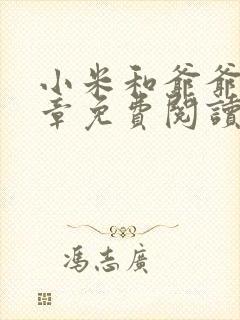 小米和爺爺
章免費閱讀
馮志廣